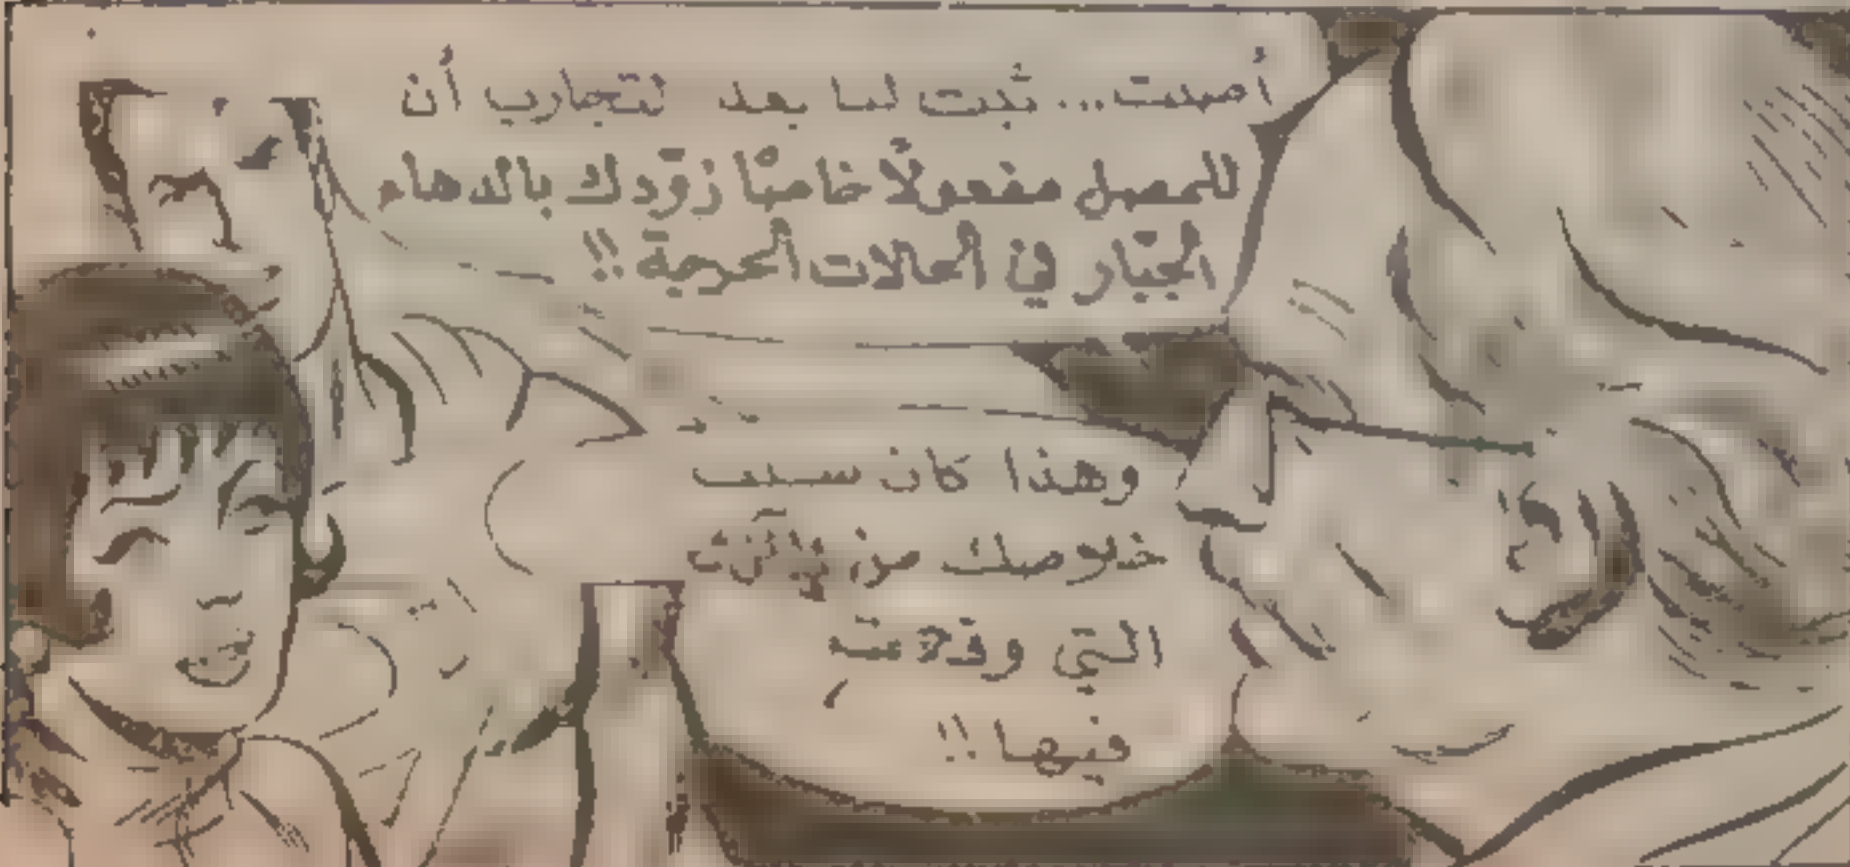 أصبت... ثبت لنا بعد التجارب أن
للمصل مفعولاً خاصًا زوّدك بالدهاء
الجبّار في الحالات الحرجة !!
وهذا كان سبب
خلاصك من
التي وقعت
فيها !!